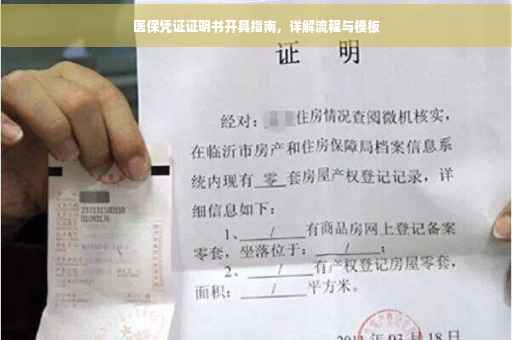 医保凭证证明书开具指南，详解流程与模板
证 明
经对：住房情况查阅微机核实，
在临沂市房产和住房保障局档案信息系
统内现有 零 套房屋产权登记记录，详
细信息如下：
1、 / 有商品房网上登记备案
零套，坐落位于： / ；
2、 / 有产权登记房屋零套，
面积： / 平方米。
03月18日